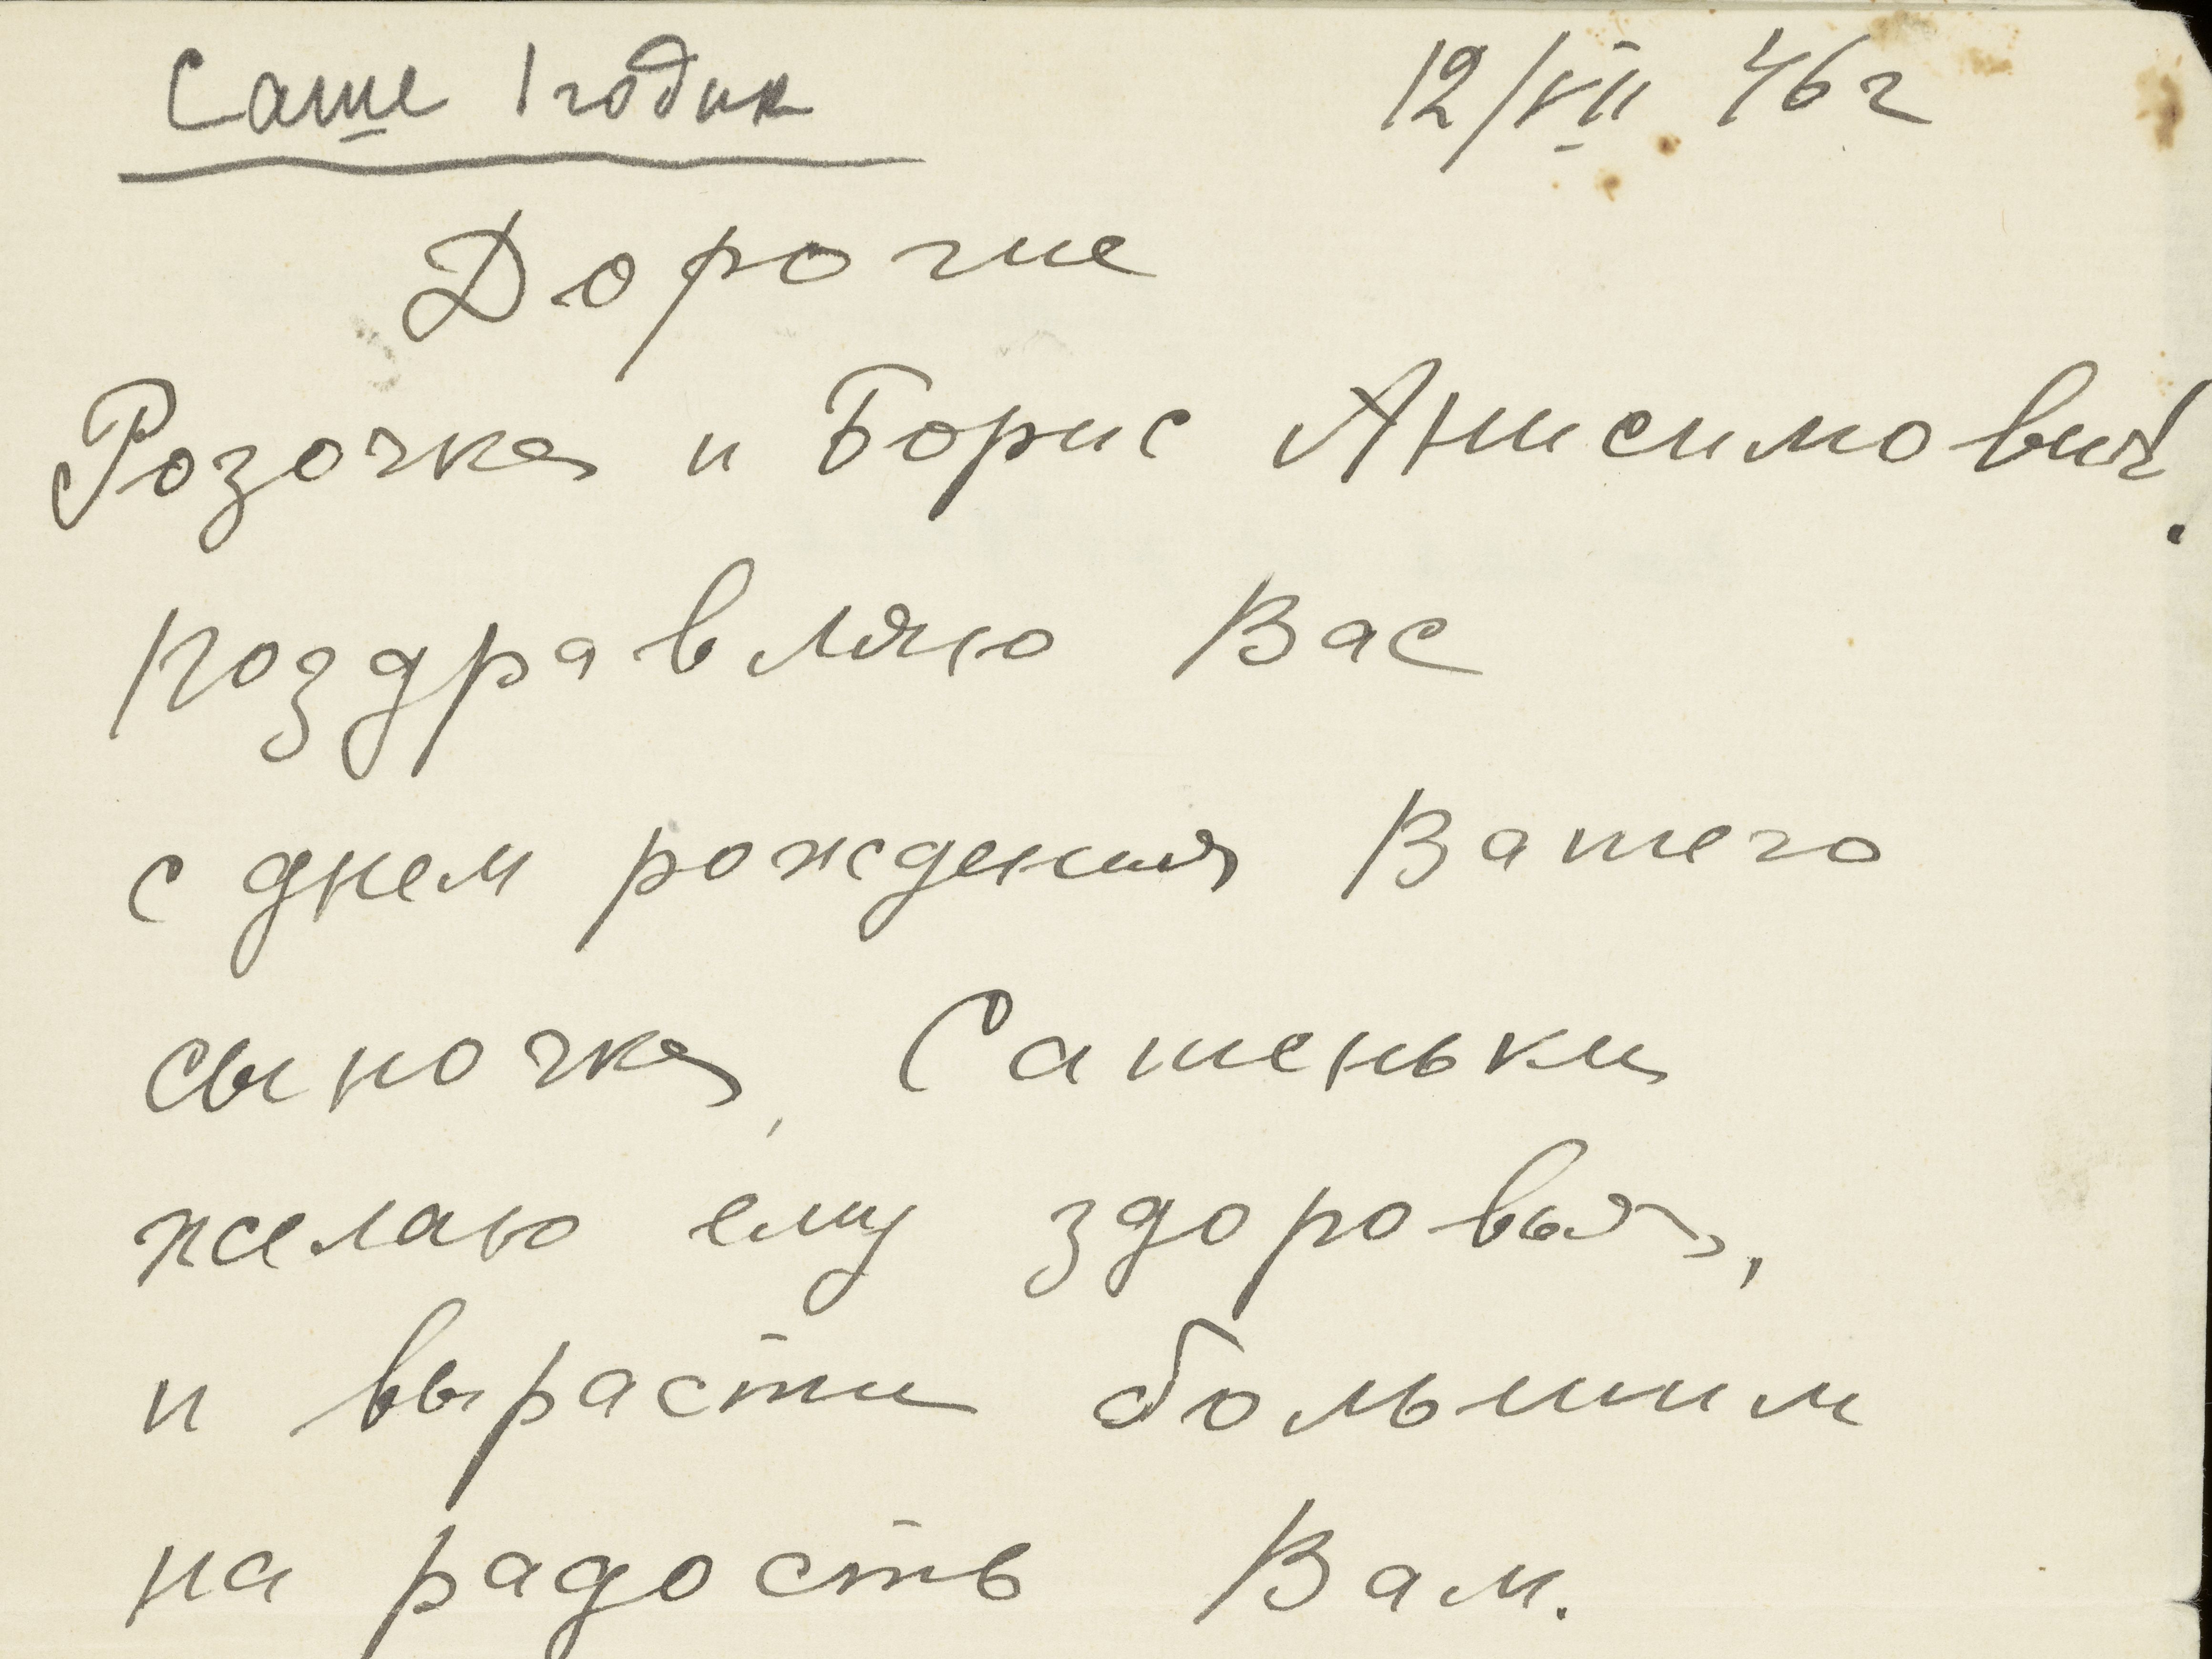 Саше 1 годик
12/VII 46 г
Дорогие
Розочка и Борис Анисимович!
Поздравляю Вас
с днем рождения Вашего
сыночка, Сашеньки
желаю ему здоровья,
и вырасти большим
на радость Вам.